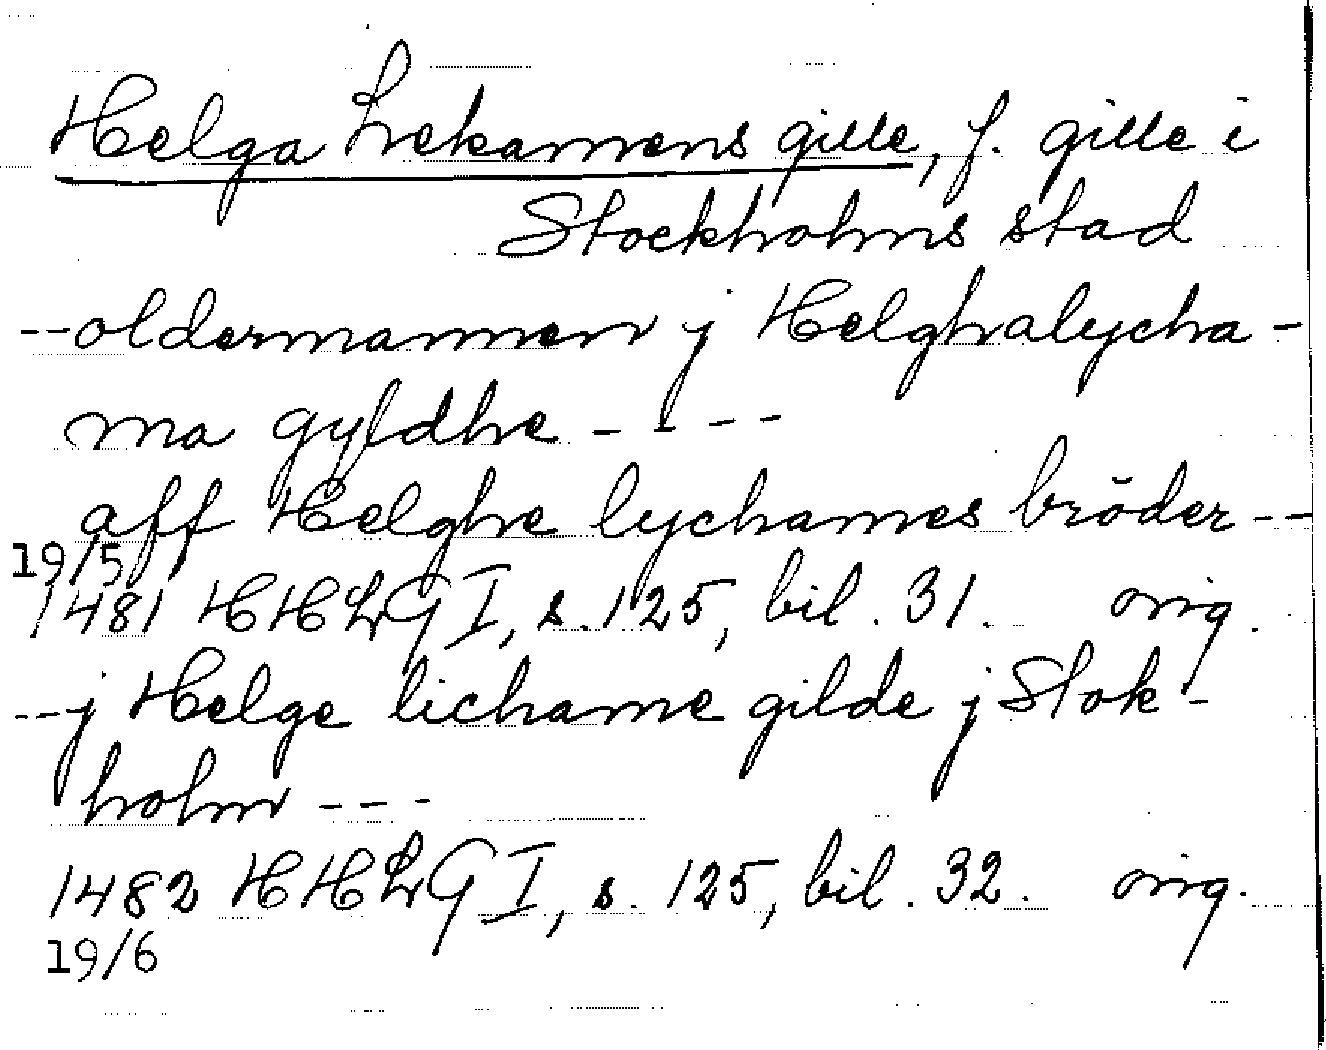 Helga Lekamens gille, f. gille i
Stockholms stad
--oldermannen j Helghalycha-
ma gyldhe ----
aff Helghe lychames bröder--
19/5
1481 HHLG I, s. 125, bil. 31. orig.
--j Helge lichame gilde j Stok-
holm ---
1482 HHLG I, s. 125, bil. 32. orig.
19/6